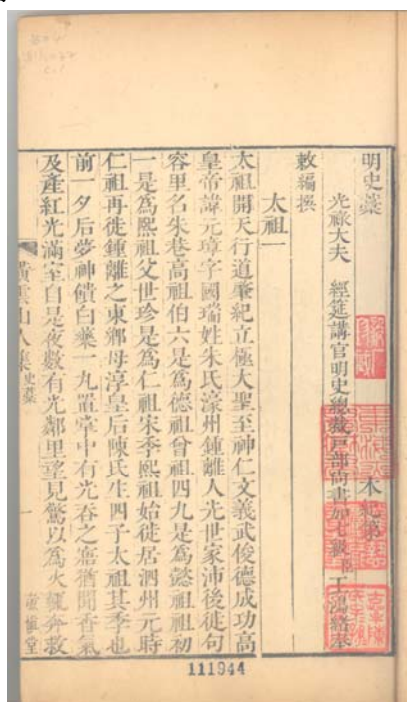 明史藁
本紀第一
光祿大夫 經筵講官明史總裁戶部尚書加七級臣王鴻緒奉
敕編撰
太祖一
太祖開天行道肇紀立極大聖至神仁文義武俊德成功高
皇帝諱元璋字國瑞姓朱氏濠州鍾離人先世家沛後徙句
容里名朱巷高祖伯六是爲德祖曾祖四九是爲懿祖祖初
一是爲熙祖父世珍是爲仁祖宋季熙祖始徙居泗州元時
仁祖再徙鍾離之東鄉母淳皇后陳氏生四子太祖其季也
前一夕后夢神饋白藥一丸置掌中有光吞之寤猶聞香氣
及產紅光滿室自是夜數有光鄰里望見驚以爲火輒奔救
橫雲山人集 史藁
一
敬慎堂
111944